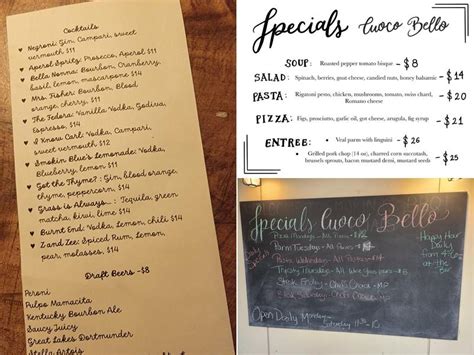 Cocktails
Negroni: Gin, Campari, sweet
vermouth $11
Aperol Spritz: Prosecco, Aperol $11
Bella Nonna: Bourbon, Cranberry,
basil, lemon, mascarpone $14
Mrs. Fisher: Bourbon, Blood
orange, cherry, $11
The Fedora: Vanilla Vodka, Godiva,
Espresso, $14
I Know Carl: Vodka, Campari,
sweet vermouth $12
Smokin Blue's lemonade: Vodka,
Blueberry, lemon $11
Got the Thyme? : Gin, blood orange,
thyme, peppercorn, $14
Grass is Always... : Tequila, green
matcha, kiwi, lime $14
Burnt End: Vodka, Lemon, chili $14
Z and Zee: Spiced Rum, Lemon,
pear, molasses, $14
Draft Beers -$8
Peroni
Pulpo Mamacita
Kentucky Bourbon Ale
Saucy Juicy
Great Lakes Dortmunder
Stella Artois
Specials Cuoco Bello
SOUP: Roasted pepper tomato bisque - $8
SALAD: Spinach, berries, goat cheese, candied nuts, honey balsamic - $14
PASTA: Rigatoni pesto, chicken, mushrooms, tomato, swiss chard, - $20
Romano cheese
PIZZA: Figs, prosciutto, garlic oil, goat cheese, arugula, fig syrup - $21
ENTREE: Veal parm with linguini - $26
Grilled pork chop (14 oz), charred corn succotash, - $25
brussels sprouts, bacon mustard demi, mustard seeds
Specials Cuoco Bello
Pizza Mondays - All Pizzas
Parm Tuesdays - All
Pasta Wednesday - All Pastas
Thirsty Thursdays - All Wine
Friday - Chef's Choice
Saturday - Chef's Choice
Happy Hour
Daily
from 4-6
at the
Bar
Open Daily Monday-
Saturday